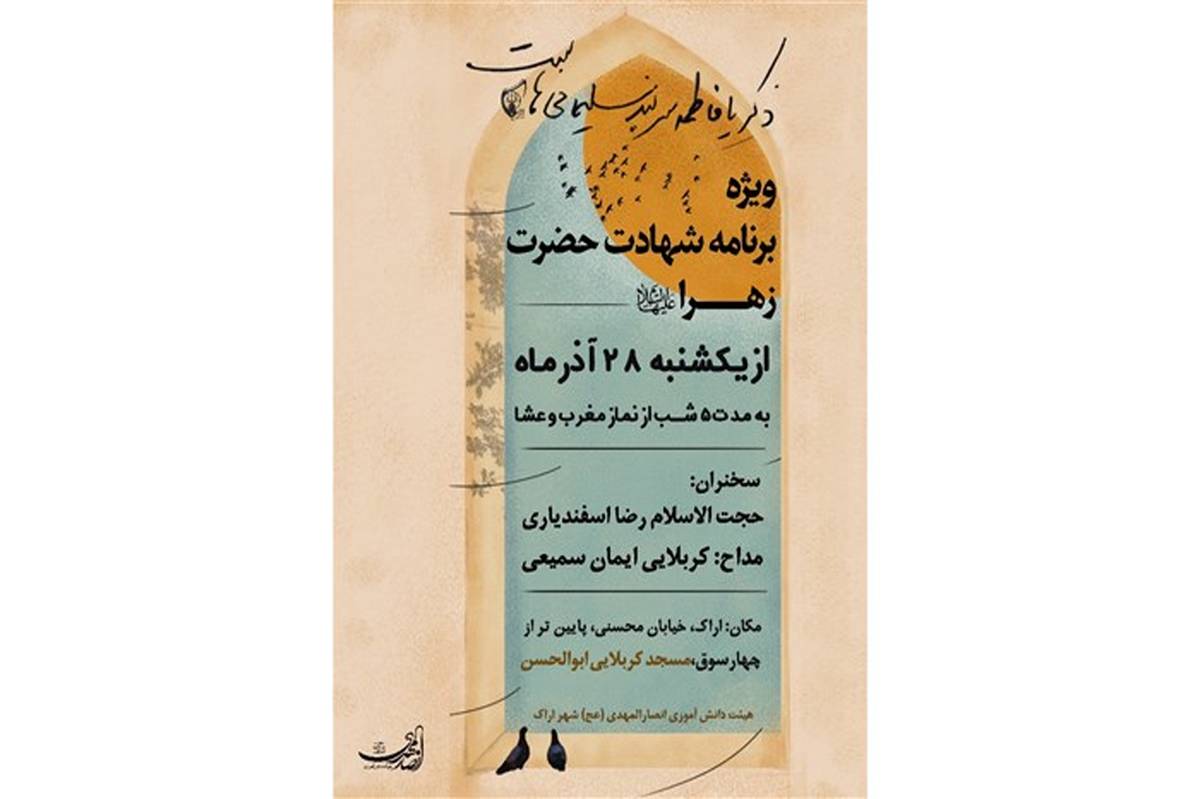 ذکر یا فاطمه سربند سلیمانی‌ها
ست
ویژه
برنامه شهادت حضرت
زهــرا علیهاالسلام
از یکشنبه ۲۸ آذر ماه
به مدت ۵ شــب از نماز مغرب و عشا
سخنران:
حجت الاسلام رضا اسفندیاری
مداح: کربلایی ایمان سمیعی
مکان: اراک، خیابان محسنی، پایین تر از
چهارسوق،مسجد کربلایی ابوالحسن
هیئت دانش آموزی انصارالمهدی (عج) شهر اراک